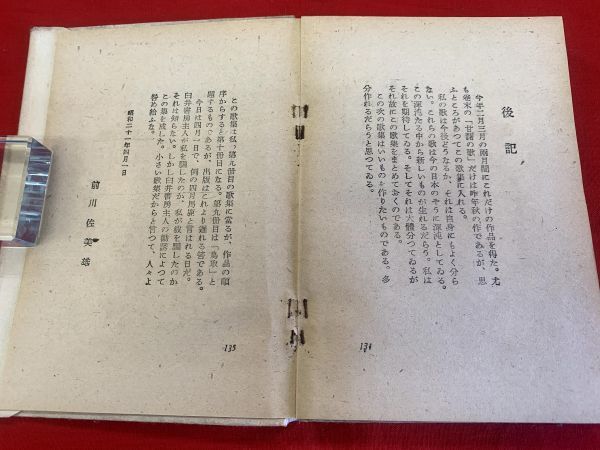 後記
今年二月三月の兩月間にこれだけの作品を得た。尤
も卷末の「甘藷の歌」だけは昨年秋の作であるが、思
ふところがあつてこの歌集に入れる。
私の歌は今後どうなるか、それは自身にもよく分ら
ない。これらの歌は今の日本のやうに渾沌としてゐる。
この渾沌たる中から新しいものが生れるだらう。私は
それを期待してゐる。そしてそれは大體分つてゐるが
それ故にこの歌集をまとめておくのである。
この次の歌集はいいものを作りたいものである。多
分作れるだらうと思つてゐる。
134
この歌集は私の第九册目の歌集に當るが、作品の順
序からすると第十册目になる。第九册目は「鳥取」と
題するものであるが、出版はこれより遲れる筈である。
今日は四月一日で、例の四月馬鹿と言はれる日だ。
臼井書房主人が私を騙したのか、私が彼を騙したのか
それは知らない。しかし臼井書房主人の勸誘によつて
この集を成した。小さい歌集だからと言つて人々よ
咎め給ふな。
昭和二十一年四月一日
前川佐美雄
135